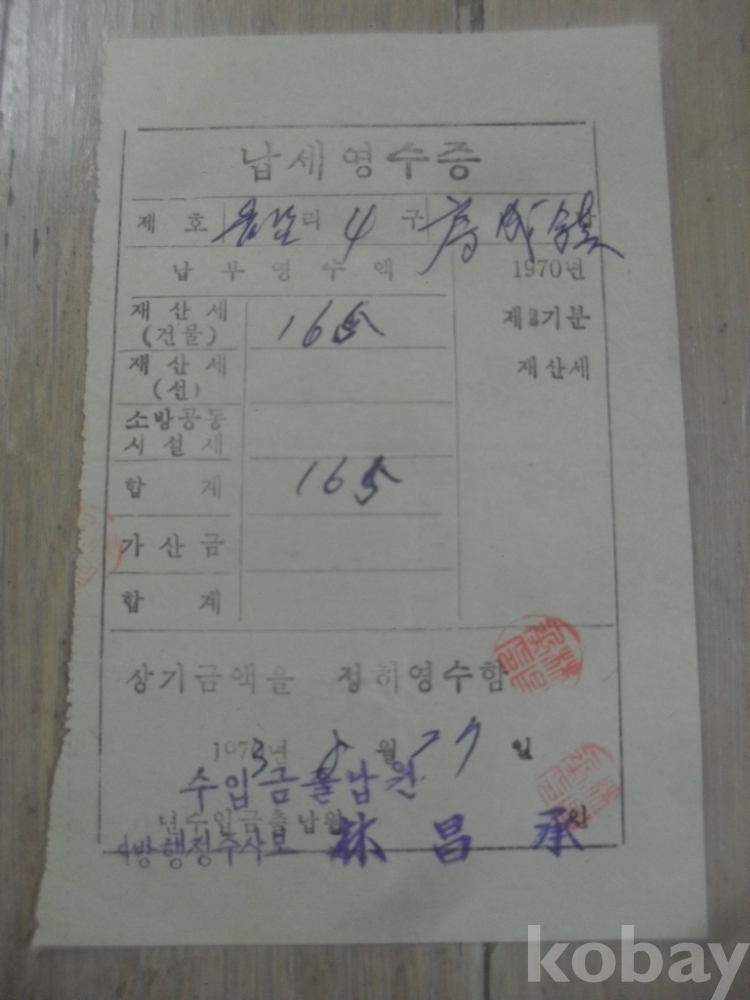 납세영수증
제 호 리 4 구
납 부 영 수 액 1970년
재산세 (건물) 165 제2기분
재산세 (선) 재산세
소방공동
시설세
합 계 165
가산금
합 계
상기금액을 정히영수함
1973년 월 27 일
수입금출납원
년수입금출납원 인
지방행정주사보 林昌承
kobay